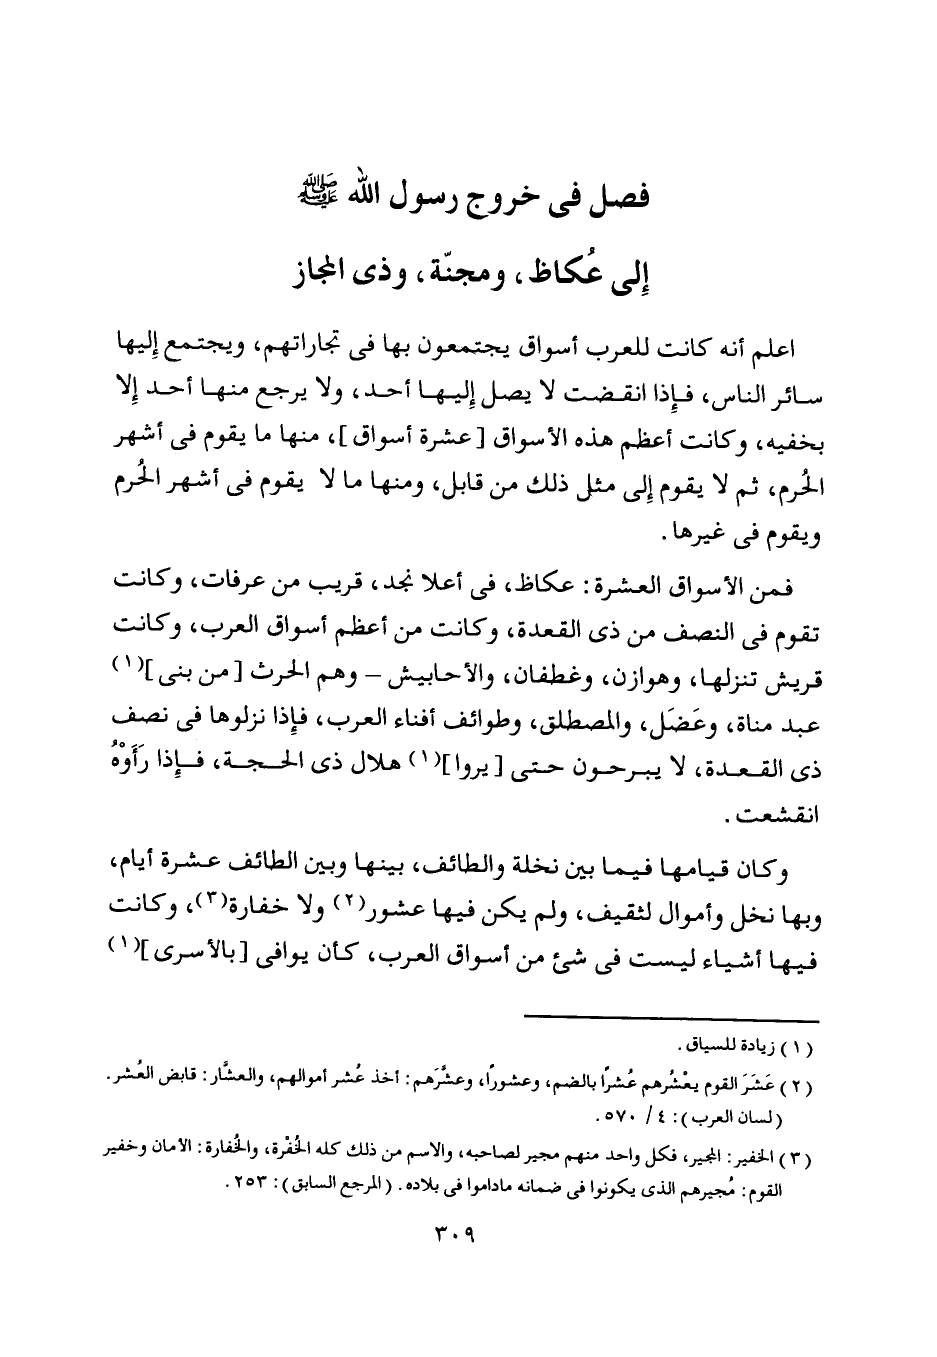 فصل فى خروج رسول الله ﷺ
إلى عُكاظ، ومجنّة، وذى المجاز
اعلم أنه كانت للعرب أسواق يجتمعون بها فى تجاراتهم، ويجتمع إليها
سائر الناس، فإذا انقضت لا يصل إليها أحد، ولا يرجع منها أحد إلا
بخفيه، وكانت أعظم هذه الأسواق [عشرة أسواق]، منها ما يقوم فى أشهر
الحُرم، ثم لا يقوم إلى مثل ذلك من قابل، ومنها ما لا يقوم فى أشهر الحرم
ويقوم فى غيرها.
فمن الأسواق العشرة: عكاظ، فى أعلا نجد، قريب من عرفات، وكانت
تقوم فى النصف من ذى القعدة، وكانت من أعظم أسواق العرب، وكانت
قريش تنزلها، وهوازن، وغطفان، والأحابيش – وهم الحرث [من بنى](١)
عبد مناة، وعَضَل، والمصطلق، وطوائف أفناء العرب، فإذا نزلوها فى نصف
ذى القعدة، لا يبرحون حتى [يروا](١) هلال ذى الحجة، فإذا رَأَوْهُ
انقشعت.
وكان قيامها فيما بين نخلة والطائف، بينها وبين الطائف عشرة أيام،
وبها نخل وأموال لثقيف، ولم يكن فيها عشور(٢) ولا خفارة(٣)، وكانت
فيها أشياء ليست فى شئ من أسواق العرب، كأن يوافى [بالأسرى](١)
(١) زيادة للسياق.
(٢) عَشَرَ القوم يعْشُرهم عُشرًا بالضم، وعشورًا، وعشَّرَهم: أخذ عُشر أموالهم، والعشَّار: قابض العُشر.
(لسان العرب): ٤/ ٥٧٠.
(٣) الخفير: المجير، فكل واحد منهم مجير لصاحبه، والاسم من ذلك كله الخُفْرة، والخُفارة: الأمان وخفير
القوم: مُجيرهم الذى يكونوا فى ضمانه ماداموا فى بلاده. (المرجع السابق): ٢٥٣.
٣٠٩